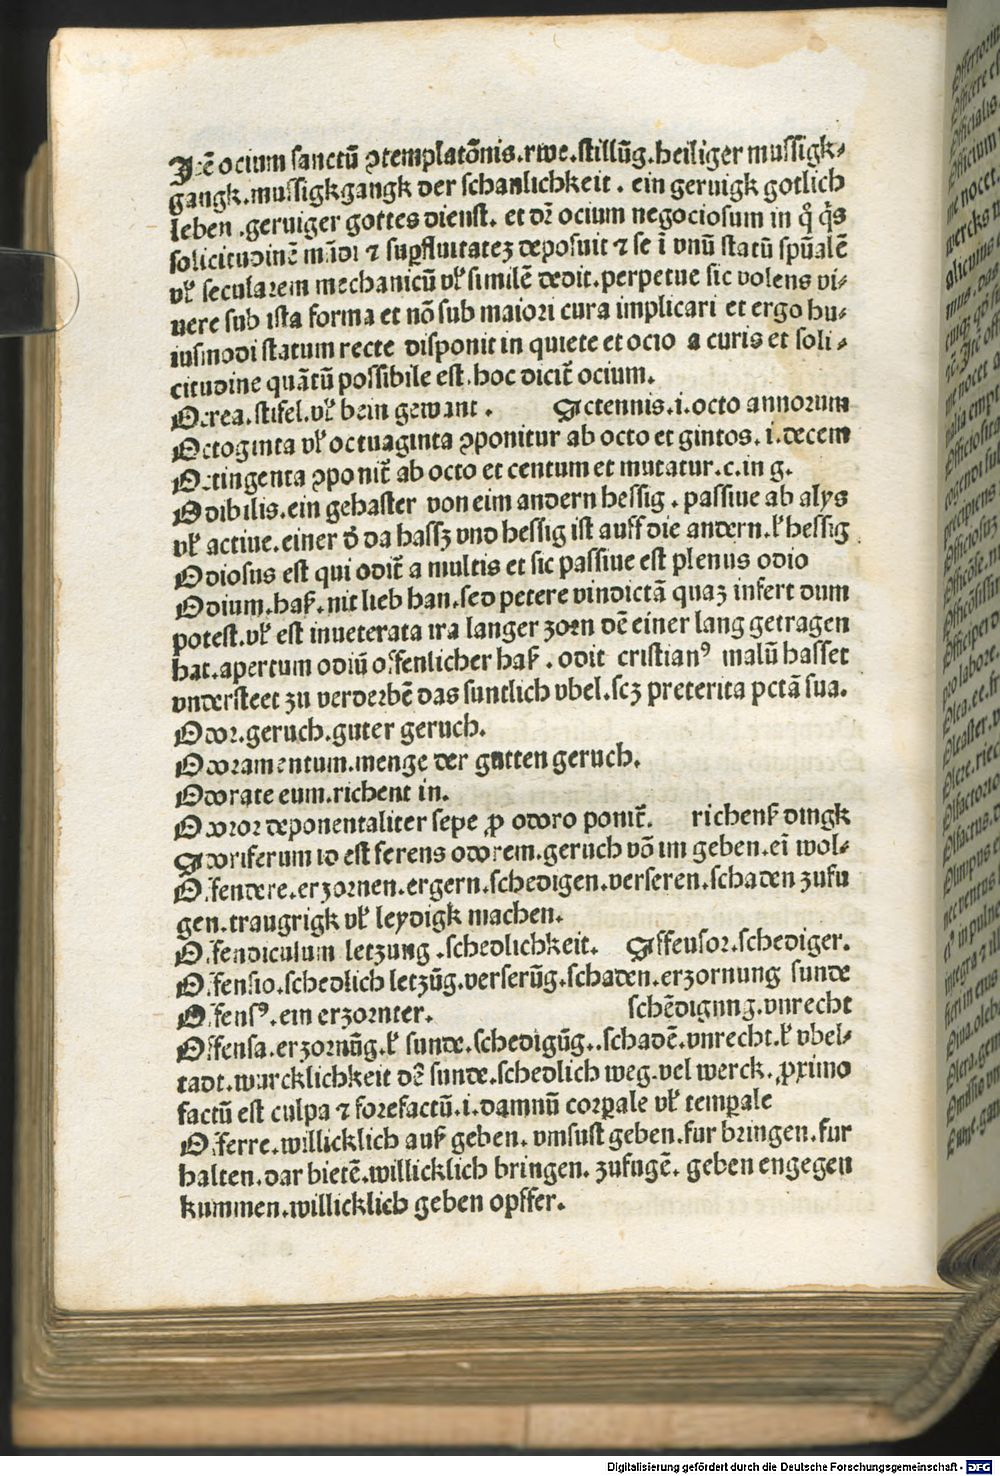 Itē ocium sanctū ꝯtemplatōnis.rwe.stillūg.heiliger mussigk⸗
gangk.mussigkgangk der schanlichkeit . ein geruigk gotlich
leben .geruiger gottes dienst. et dr̄ ocium negociosum in qͦ qͥs
solicitudinē mūdi ⁊ suꝑfluitatez deposuit ⁊ se ī vnū statū spūalē
vl̓ secularem mechanicū vl̓ similē dedit.perpetue sic volens vi⸗
uere sub ista forma et nō sub maiori cura implicari et ergo hu⸗
iusmodi statum recte disponit in quiete et ocio a curis et soli⸗
citudine quātū possibile est.hoc dicit̄ ocium.
Ocrea.stifel.vl̓ bein gewant . Octennis.i.octo annorum
Octoginta vl̓ octuaginta ꝯponitur ab octo et gintos. i.decem
Octingenta ꝯponit̄ ab octo et centum et mutatur.c.in g.
Odibilis.ein gehaster von eim andern hessig . passiue ab alys
vl̓ actiue.einer d̄ da hassz vnd hessig ist auff die andern.l̓ hessig
Odiosus est qui odit̄ a multis et sic passiue est plenus odio
Odium.haß.nit lieb han.sed petere vindictā quaz infert dum
potest.vl̓ est inueterata ira langer zorn dē einer lang getragen
hat.apertum odiū offenlicher haß . odit cristianꝰ malū hasset
vndersteet zu verderbē das suntlich vbel.scz preterita pctā sua.
Odor.geruch.guter geruch.
Odoramentum.menge der gutten geruch.
Odorate eum.richent in.
Odoror deponentaliter sepe ꝓ odoro ponit̄. richenß dingk
Odoriferum id est ferens odorem.geruch vō im geben.eī wol⸗
Offendere.erzornen.ergern.schedigen.verseren.schaden zufu
gen.traugrigk vl̓ leydigk machen.
Offendiculum letzung .schedlichkeit. Offensor.schediger.
Offensio.schedlich letzūg.verserūg.schaden.erzornung sunde
Offensꝰ.ein erzornter. schēdigung.vnrecht
Offensa.erzornūg.l̓ sunde.schedigūg..schadē.vnrecht.l̓ vbel⸗
tadt.wurcklichkeit dē sunde.schedlich weg.vel werck.ꝓximo
factū est culpa ⁊ forefactū.i.damnū corꝑale vl̓ temꝑale
Offerre.willicklich auß geben. vmsust geben.fur bringen.fur
halten.dar bietē.willicklich bringen. zufugē. geben engegen
kummen.willicklich geben opffer.
Digitalisierung gefördert durch die Deutsche Forschungsgemeinschaft - DFG